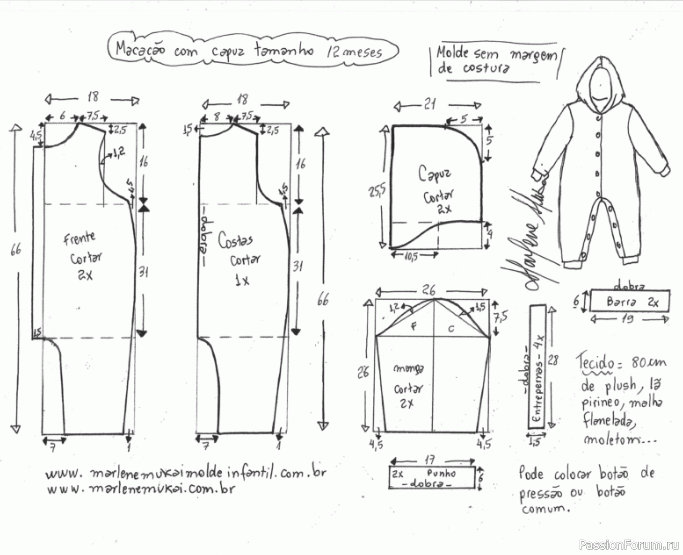 Macacão com capuz tamanho 12 meses
Molde sem margem
de costura
18
6
7,5
4,5
2,5
1,2
16
1,5
66
Frente
cortar
2x
31
1,5
7
1
18
8
7,5
1,5
2,5
16
1,5
dobra
Costas
cortar
1x
31
66
7
1
21
5
5
25,5
Capuz
Cortar
2x
4
10,5
26
1,2
1,5
7,5
F
C
26
manga
cortar
2x
4,5
4,5
17
2x Punho
-dobra-
6
dobra
Entrepernas - 4x
28
1,5
dobra
6
Barra 2x
19
Tecido = 80cm
de plush, lã
pirineo, malha
flanelada,
moletom...
Pode colocar botão de
pressão ou botão
comum.
www.marlenemukaimoldeinfantil.com.br
www.marlenemukai.com.br
PassionForum.ru